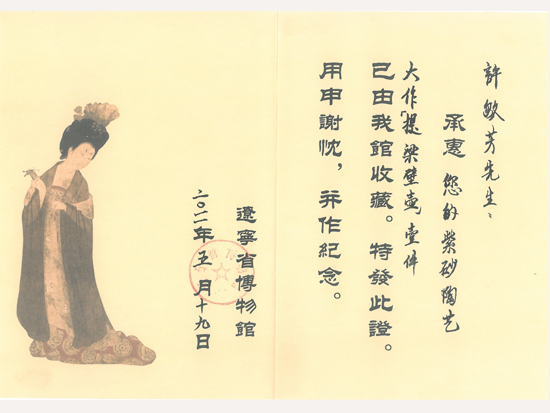 許敏芳先生：
承惠 您的紫砂陶艺
大作“提梁壁壶”壹件
已由我館收藏。特發此證。
用申謝忱，并作紀念。
遼寧省博物館
二〇一一年五月十九日